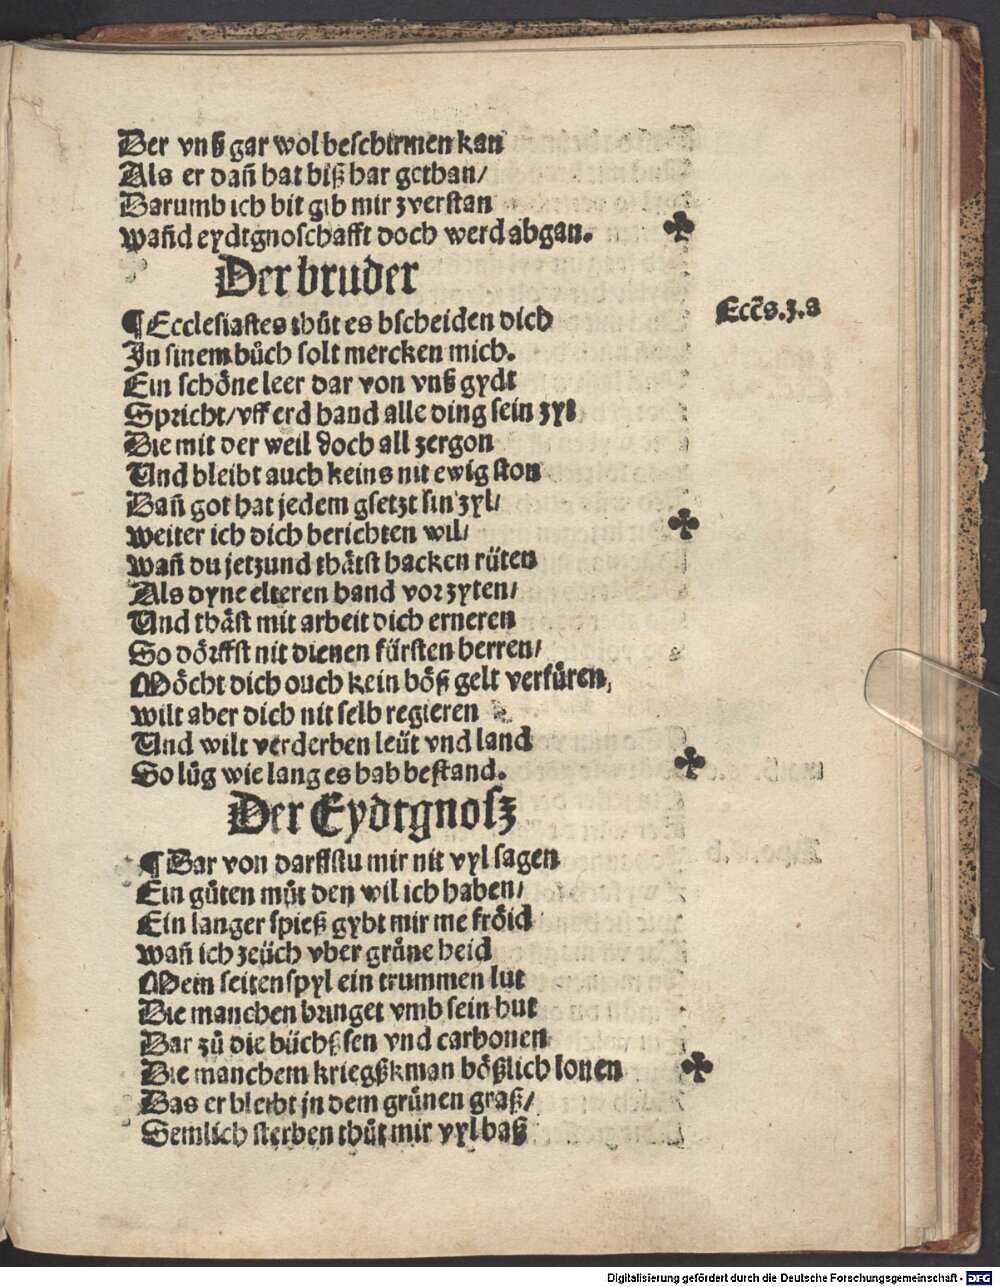 Der vnß gar wol beschirmen kan
Als er dañ hat biß har gethan/
Darumb ich bit gib mir zverstan
wañd eydtgnoschafft doch werd abgan. ♣
Der bruder
¶ Ecclesiastes thůt es bscheiden dich
Eccēs.3.a
In sinem bůch solt mercken mich.
Ein schöne leer dar von vnß gydt
Spricht/vff erd hand alle ding sein zyl
Die mit der weil doch all zergon
Und bleibt auch keins nit ewig ston
Dañ got hat jedem gsetzt sin zyl/
weiter ich dich berichten wil/ ♣
wañ du jetzund thätst hacken rüten
Als dyne elteren hand vor zyten/
Und thäst mit arbeit dich erneren
So dörffst nit dienen fürsten herren/
Möcht dich ouch kein böß gelt verfüren,
wilt aber dich nit selb regieren
Und wilt verderben leüt vnd land
So lůg wie lang es hab bestand. ♣
Der Eydtgnosz
¶ Dar von darffstu mir nit vyl sagen
Ein gůten můt den wil ich haben/
Ein langer spieß gybt mir me fröid
wañ ich zeüch vber grüne heid
Mein seitenspyl ein trummen lut
Die manchen bringet vmb sein hut
Dar zů die büchßsen vnd carbonen
Die manchem kriegßkman bößlich lonen ♣
Das er bleibt in dem grünen graß/
Semlich sterben thůt mir vyl baß
Digitalisierung gefördert durch die Deutsche Forschungsgemeinschaft - DFG